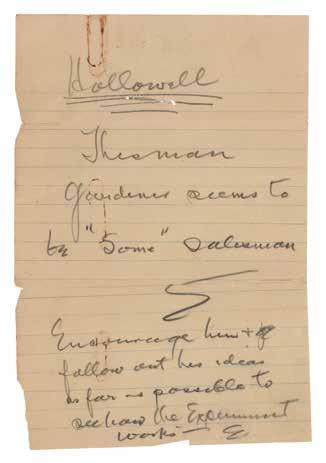 Hollowell
This man
Gardener seems to
be "Some" salesman
Encourage him &
follow out his ideas
as far as possible to
see how the Experiment
works — E